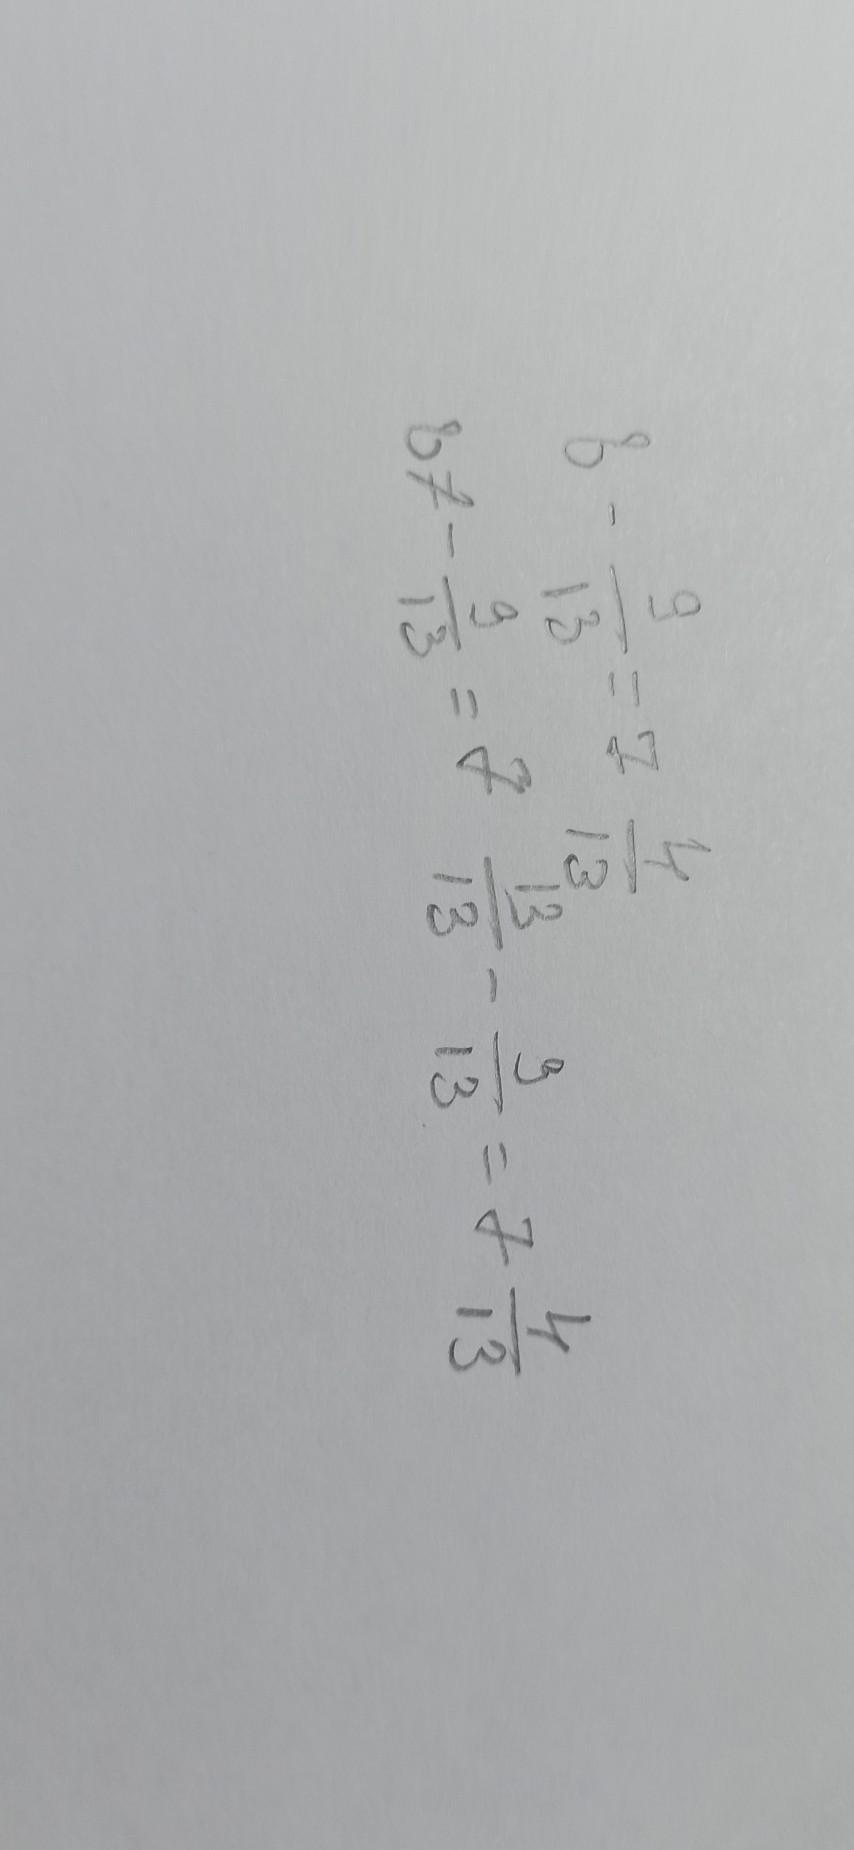 8 - 9/13 = 7 4/13
87 - 9/13 = 7 13/13 - 9/13 = 7 4/13